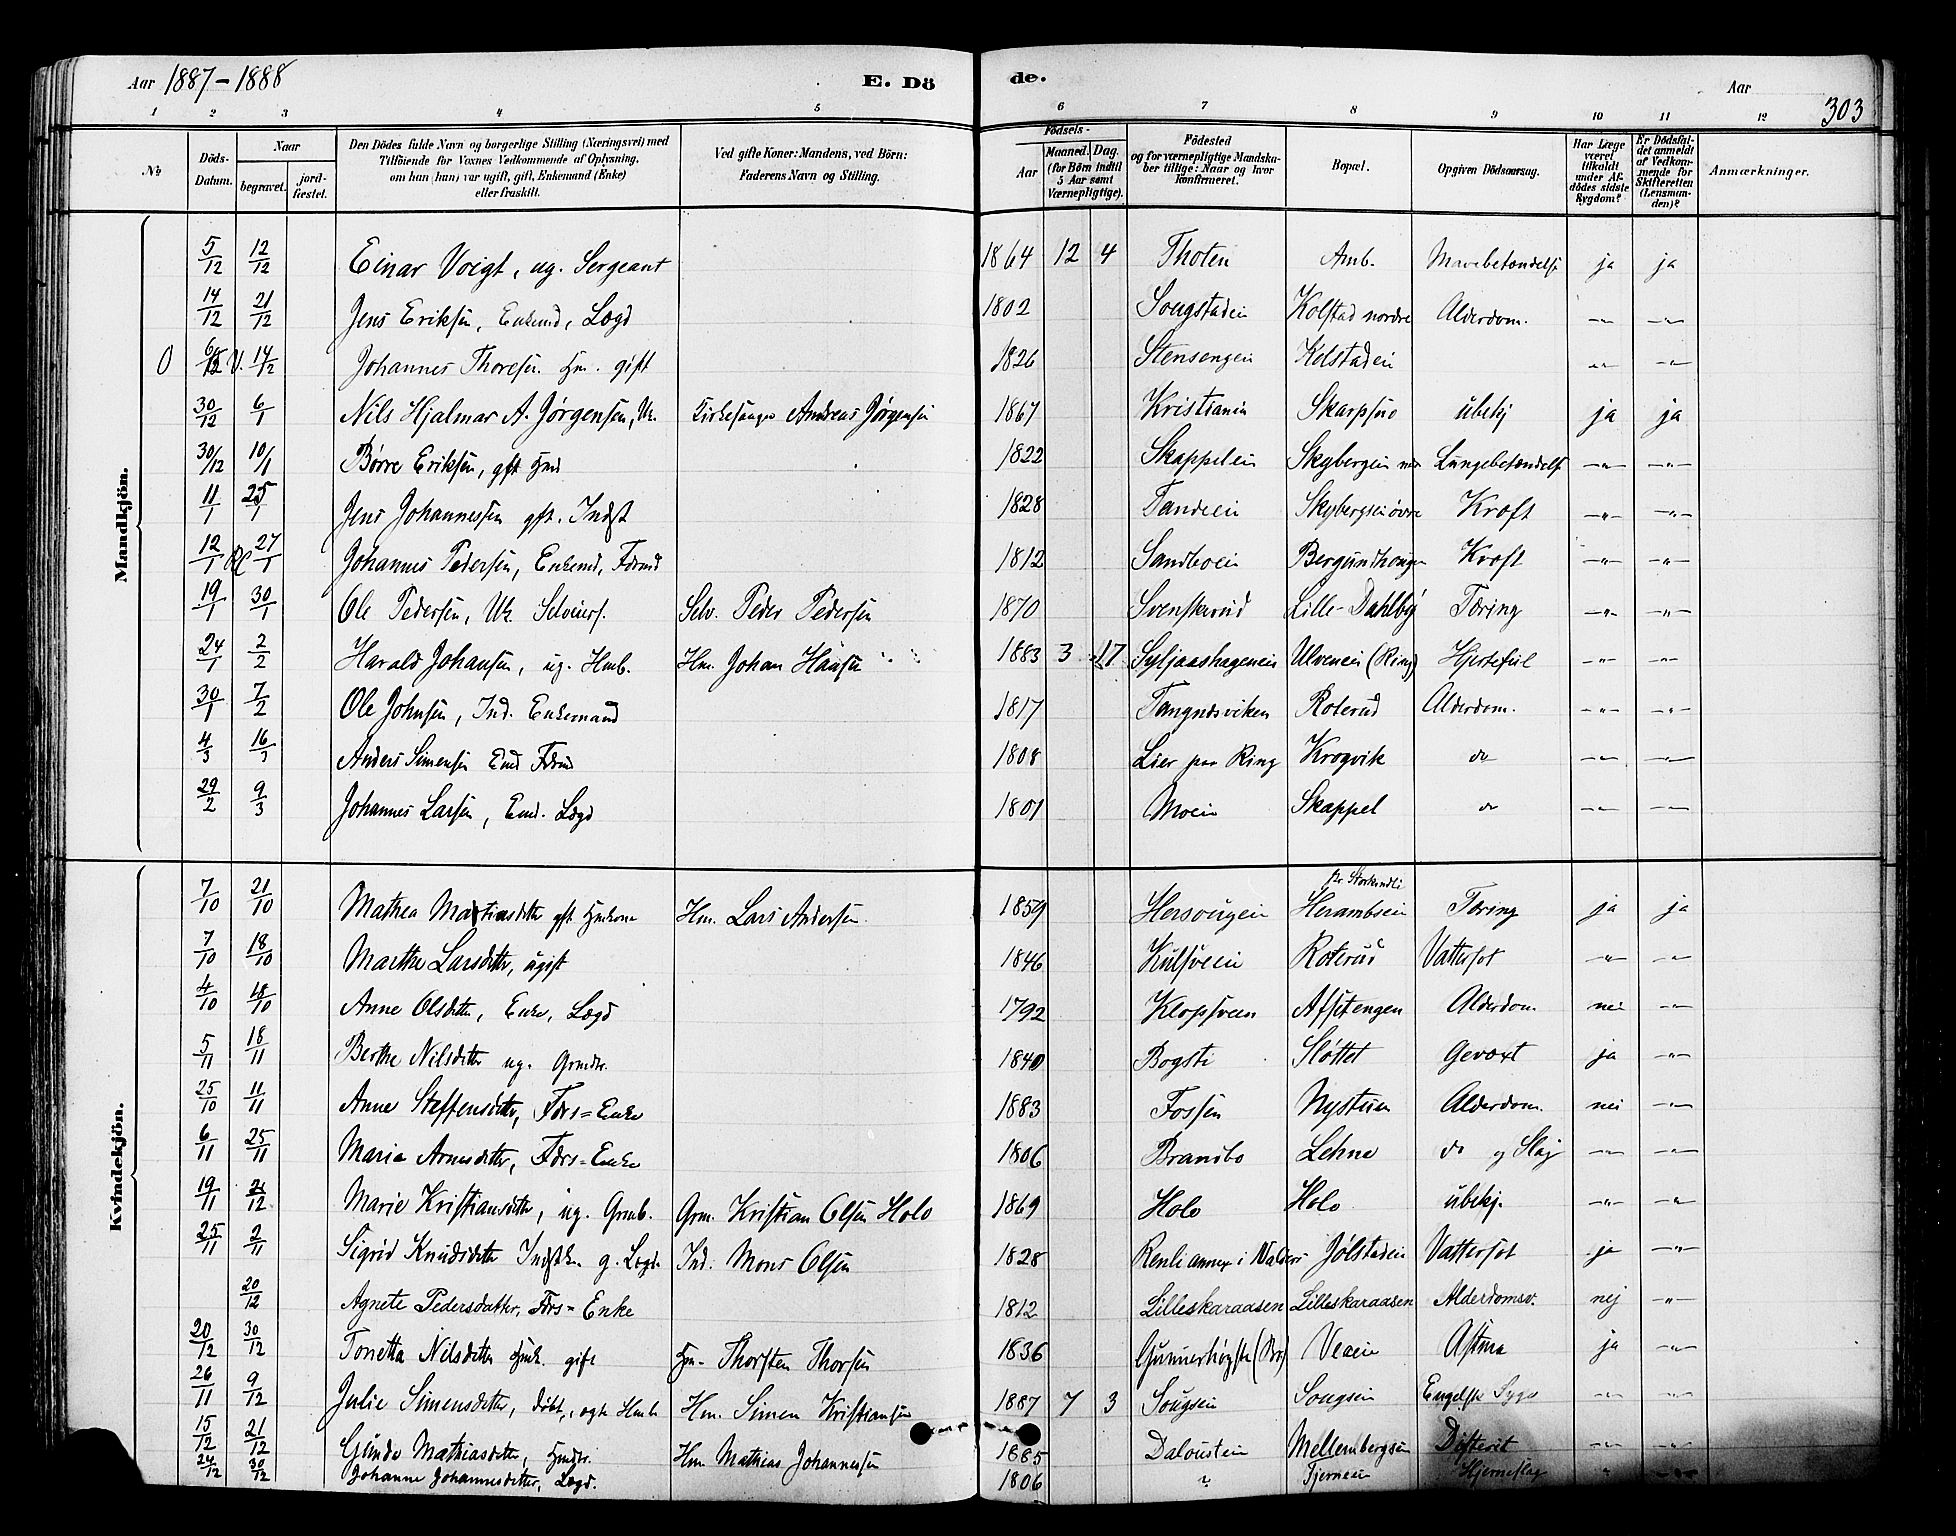 Aar 1887-1888 E. Dö de. Aar 303
1 2 3 4 5 6 7 8 9 10 11 12
No
Döds-Datum.
Naar begravet. jordfæstet.
Den Dödes fulde Navn og borgerlige Stilling (Næringsvei) med Tilföiende for Voxnes Vedkommende af Oplysning, om han (hun) var ugift, gift, Enkemand (Enke) eller fraskilt.
Ved gifte Koner: Mandens, ved Börn: Faderens Navn og Stilling.
Födsels-
Aar Maaned. Dag. (for Börn indtil 5 Aar samt Værnepligtige).
Födested og for værnepligtige Mandskaber tillige: Naar og hvor konfirmeret.
Bopæl.
Opgiven Dödsaarsag.
Har Læge været tilkaldt under Afdödes sidste Sygdom?
Er Dödsfaldet anmeldt af Vedkommende for Skifteretten (Lensmanden)?
Anmærkninger.
Mandkjön.
5/12 12/12 Einar Voigt, ug. Sergeant 1864 12 4 Thoten Amb. Mavebetændelse ja ja
14/12 21/12 Jens Eriksen, Enkemd, Lægd 1802 Sougstadeien Kolstad nordre Alderdom. -„- -„-
0 V. 14/12 Johannes Thoresen. Hm. gift 1826 Stensengen Kolstadeien -„- -„-
30/12 6/1 Nils Hjalmar A. Jørgensen, Uk. Kirkesanger Andreas Jørgensen 1867 Kristiania Skarpsno ubekj ja ja
30/12 10/1 Børre Eriksen, gft Hmd 1822 Skappelein Skybergein Lungebetændelse -„- -„-
11/1 25/1 Jens Johannessen gft. Indst 1828 Tandeein Skybergseie øvre Kræft -„- -„-
12/1 27/1 Johannes Pedersen, Enkemd, Fdrmd 1812 Sandboein Bergundhaugen Kræft -„- -„-
19/1 30/1 Ole Pedersen, Uk. Selveiers. Selv. Peder Pedersen 1870 Svenskerud Lille-Dahlby Tæring -„- -„-
24/1 2/2 Harald Johansen, ug. Hmb. Hm. Johan Hansen 1883 3 17 Syljaashageneie Ulveneie (Ring) Hjertefeil -„- -„-
30/1 7/2 Ole Johnsen, Ind. Enkemand 1817 Tangnesviken Roterud Alderdom. -„- -„-
4/3 16/3 Anders Simensen Emd Fdrmd 1808 Lier paa Ring Krogvik do -„- -„-
29/2 9/3 Johannes Larsen, Emd. Lægd 1801 Moein Skappel do -„- -„-
Kvindekjön.
7/10 21/10 Mathea Mathiasdtter gft Hmkone Hm. Lars Andersen 1859 Hersougein Herambseien Tæring ja ja
7/10 18/10 Marthe Larsdtter, ugift 1846 Kulsveein Roterud Vattersot -„- -„-
4/10 18/10 Anne Olsdtter, Enke, Lægd 1792 Klopsveen Afsetengen Alderdom nei -„-
5/11 18/11 Berthe Nilsdtter ug. Grmdtr. 1840 Bogsti Sløttet Gevæxt ja -„-
25/10 11/11 Anne Steffensdtter, Fdrs=Enke 1883 Fossen Nystuen Alderdom. nei -„-
6/11 25/11 Maria Arnesdtter, Fdrs=Enke 1806 Brandbo Lehne do og Slag -„- -„-
19/11 Marie Kristiansdtter, ug. Grmb. Grm. Kristian Olsen Holo 1869 Holo Holo ubekj. -„- -„-
25/11 2/11 Sigrid Knudsdtter Indstk. g. Lægd Ind. Mons Olsen 1828 Renli annex i Valders Jølstadeien Vattersot ja -„-
20/12 Agnete Pedersdatter, Fdrs=Enke 1812 Lilleskaraasen Lilleskaraasen Alderdomsv. nej -„-
20/12 30/12 Tonetta Nilsdtter Hmk. gift Hm- Thorsten Thorsen 1836 Gunnerhøgst (Bro) Veeie Astma ja -„-
26/11 9/12 Julie Simensdtter, døbt, ægte Hmb Hm. Simen Kristiansen 1887 7 3 Sougsein Sougsein Engelsk Syge -„- -„-
15/12 21/12 Gunda Mathiasdtter, Hmdtr. Hm Mathias Johannessen 1885 Daloustein Mellembergsein Difterit -„- -„-
24/12 30/12 Johanne Johannesdtter, Lægd. 1806 ? Tjerneein Hjerneslag „ -„-